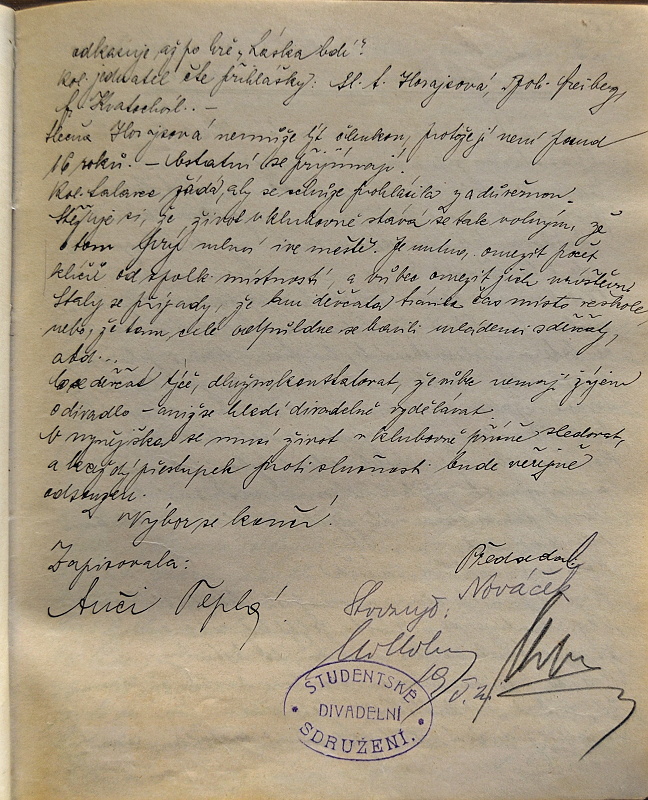 odkazuje až po hře „Láska bdí“
Kol. jednatel čte přihlášky: Sl. A. Horajsová, Bob. Freiberg,
A. Kratochvíl. –
Slečna Horajsová nemůže být členkou, protože jí není poud
16 roků. – Ostatní se přijímají.
Kol. žádá, aby se schůze prohlásila za důvěrnou.
Stěžuje si, že život v klubovně stává se tak volným, že
o tom mluví i ve městě. Je nutno, omezit počet
klíčů od spolk. místností, a vůbec omezit jich návštěvu
Staly se případy, že tam děvčata trávila čas místo ve škole,
nebo, že tam celé odpůldne se bavili mládenci s děvčaty,
atd...
Co se děvčat týče, dlužno konstatovat, že vůbec nemají zájem
o divadlo – aniž se hledí divadelně vzdělávat.
V nynějška se musí život v klubovně přísně sledovat,
a každý přestupek proti slušnosti bude veřejně
odsouzen.
Výbor se končí.
Zapisovala:
Anči Teplá
Předseda:
Nováček
19 5. 21
STUDENTSKÉ
DIVADELNÍ
SDRUŽENÍ.